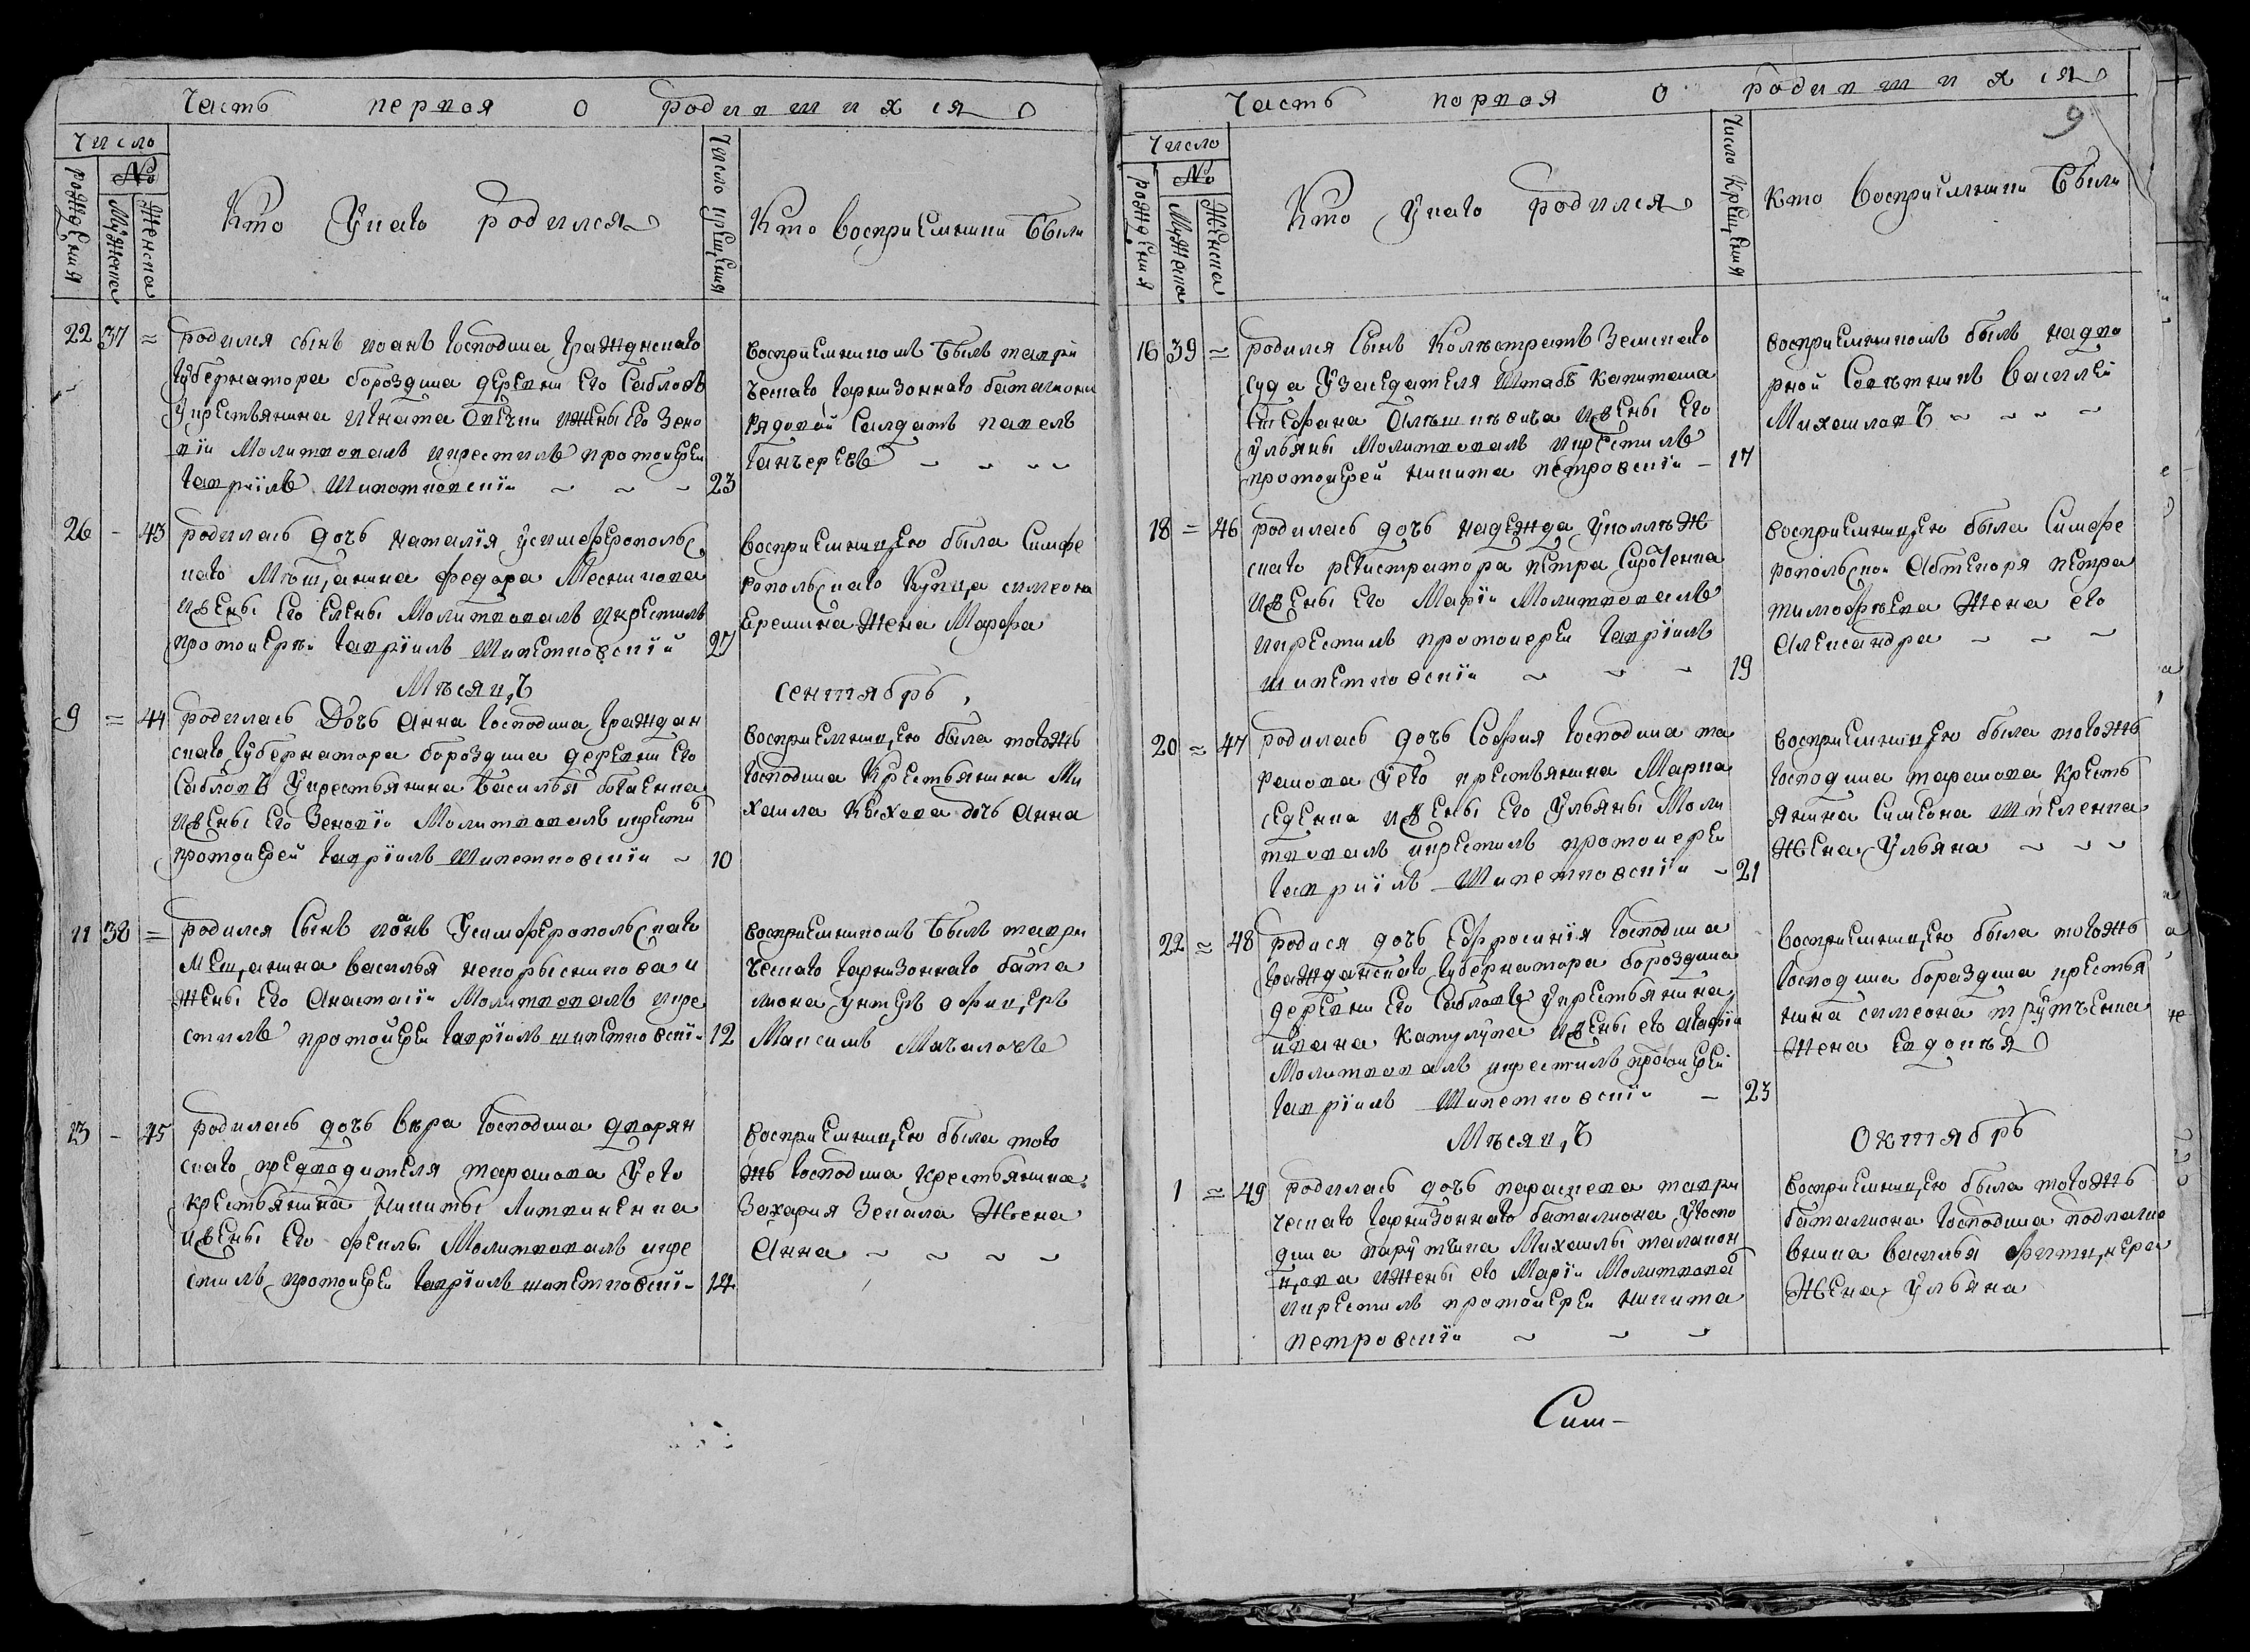 Часть первая о родившихся
Число
№
рождения
Мужеска
Женска
Кто у каго родился
Число крещения
Кто восприемники были
22 37 = родился сынъ иоанъ господина гражднскаго
губернатора бороздина деревни его Сабловъ
у крестьянина Игната
ижены его Зено
віи Молитвовалъ икрестилъ протоиереи
гавріилъ Шипотковскіи 23
восприемникомъ былъ таври
ческаго гарнизоннаго баталиона
рядовой салдатъ павелъ
26 - 43 родилась дочь наталія усимферопольс
каго мѣщанина федора Месникова
ижены его елены Молитвовалъ икрестилъ
протоиерѣи гавріилъ Шипетковскій 27
восприемницею была Симфе
ропольскаго купца симеона
Еремина жена Марфа
Мѣсяцъ
сентябрь
9 = 44 родилась Дочь Анна господина граждан
скаго губернатора бороздина деревни его
Сабловъ у крестьянина Василья
ижены его Зеновіи Молитвовалъ икрести
протоиерей гавріилъ Шипетковскіи 10
восприемницею была тогожъ
господина Крестьянина Ми
хаила дочь Анна
11 38 = родился Сынъ иоанъ усимферопольскаго
мещанина василья непорыскикова и
жены его Анастасіи Молитвовалъ икре
стилъ протоиереи гавріилъ шипетковскіи 12
восприемникомъ былъ таври
ческаго гарнизоннаго бата
лиона унтеръ офицеръ
Максимъ
13 - 45 родилась дочь вѣра господина дворян
скаго предводителя таранова у его
крестьянина никиты Литвиненка
ижены его феклы Молитвовалъ икре
стилъ протоиереи гавріилъ шипетковскіи 14
восприемницею была того
жъ господина крестьянина
Захария Зекала жена
Анна
Часть первая о родившихся
9
Число
№
рождения
Мужеска
Женска
Кто у каго родился
Число крещения
Кто восприемники были
16 39 = родился Сынъ Калѣстратъ Земскаго
суда у заседателя Штабъ капитана
Стефана ижены его
ульяны Молитвовалъ икрестилъ
протоиерей никита петровскіи 17
восприемникомъ былъ надво
рной Советникъ василей
Михаиловъ
18 = 46 родилась дочь надежда у коллѣж
скаго регистратора петра Сиротенка
ижены его Маріи Молитвовалъ
икрестилъ протоиереи гавріилъ
шипетковскіи 19
восприемницею была Симфе
ропольской Аптекоря петра
тимофѣева жена его
Александра
20 = 47 родилась дочь София господина та
ранова у его крествянина Марка
седенка ижены его ульяны Моли
твовалъ икрестилъ протоиереи
гавриілъ Шипетковскіи 21
восприемницею была тогожъ
господина таранова кресть
янина Симеона
жена ульяна
22 = 48 родися дочь Ефросинія господина
гражданскаго губернатора бороздина
деревни его Сабловъ у крестьянина
ивана ижены его агафіи
Молитвовалъ икрестилъ протоиереи
гавріилъ Шипетковскіи 23
восприемницею была тогожъ
господина бораздина крестья
нина симеона
жена Евдокѣя
Мѣсяцъ
Октябрь
1 = 49 родилась дочь параскева таври
ческаго гарнизоннаго баталиона у госпо
дина парутчика Михаилы
ижены его Маріи Молитвовалъ
икрестилъ протоиереи никита
петровскіи
восприемницею была тогожъ
баталиона господина подпалко
вника василья
жена ульяна
Сим-